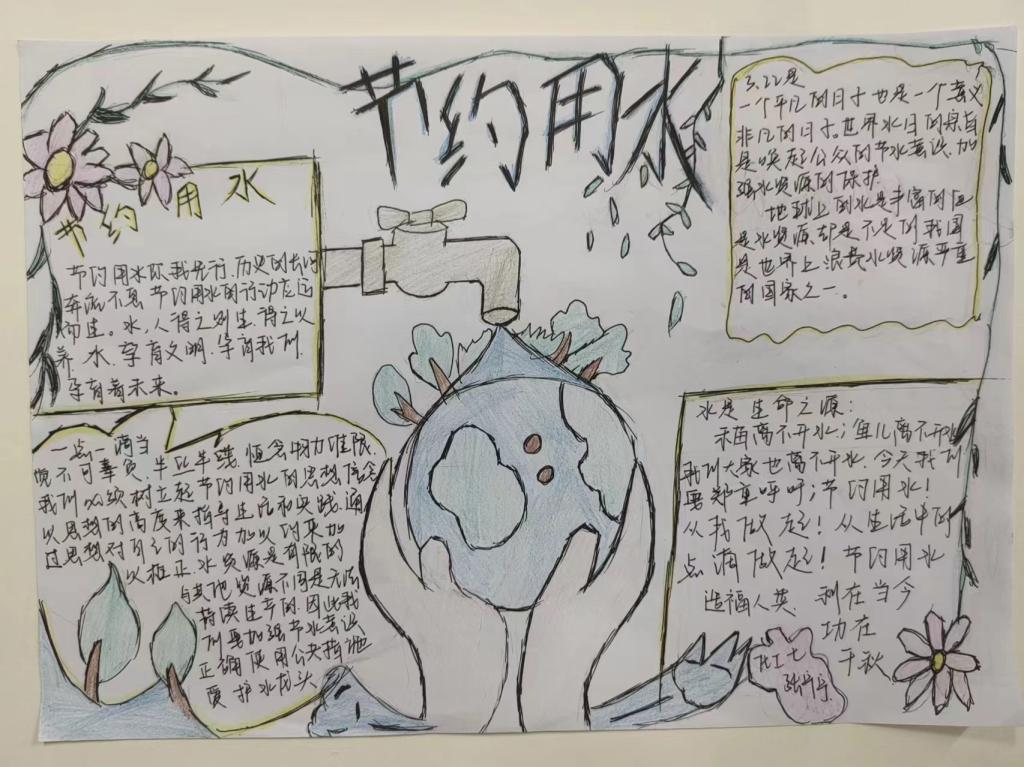 节约用水
节约用水
节约用水你我先行.历史的长河
奔流不息 节约用水的行动在这
而生。水,人得之则生.得之以
养.水.孕育文明.孕育我们.
孕育着未来。
3.22是
一个平凡的日子 也是一个意义
非凡的日子。世界水日的宗旨
是唤起公众的节水意识.加
强水资源的保护.
地球上的水是丰富的但
是水资源却是不足的 我国
是世界上浪费水资源严重
的国家之一。
一点一滴当
惯不可辜负,半丝半缕.恒念物力维限.
我们必须树立起节约用水的思想信念
以思想的高度来指导生活和实践.通
过思想对自己的行为加以约束加
以板正.水资源是有限的
与其他资源不同是无法
持续生产的.因此我
们要加强节水意识
正确使用公共措施
爱护水龙头
水是生命之源:
禾苗离不开水;鱼儿离不开水
我们大家也离不开水.今天我们
要郑重呼吁;节约用水!
从我做起!从生活中的
点滴做起!节约用水
造福人类 利在当今
功在
千秋
化工七